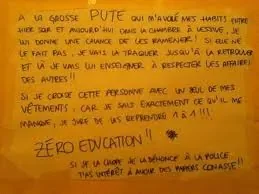 À LA GROSSE PUTE QUI M'A VOLÉ MES HABITS ENTRE
HIER SOIR ET AUJOURD'HUI DANS LA CHAMBRE À LESSIVE, JE
LUI DONNE UNE CHANCE DE LES RAMENER! SI ELLE NE
LE FAIT PAS, JE VAIS LA TRAQUER JUSQU'À LA RETROUVER
ET LÀ JE VAIS LUI ENSEIGNER À RESPECTER LES AFFAIRES
DES AUTRES!!
SI JE CROISE CETTE PERSONNE AVEC UN SEUL DE MES
VÊTEMENTS: CAR JE SAIS EXACTEMENT DE CE QU'IL ME
MANQUE, JE JURE DE LES REPRENDRE 1 À 1!!!
ZÉRO EDUCATION!!
SI JE LA CHOPE JE LA DÉNONCE À LA POLICE
T'AS INTÉRÊT À AVOIR DES PAPIERS CONASSE!!